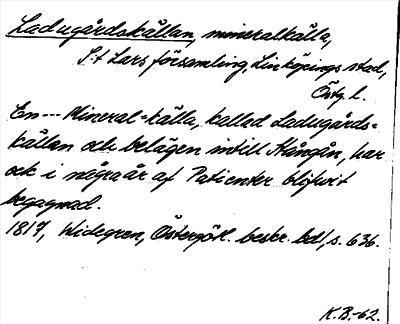 Ladugårdskällan, mineralkälla,
S:t Lars församling, Linköpings stad,
Östg. l.
En --- Mineral=källa, kallad Ladugårds=
källan och belägen intill Stångån, har
ock i några år af Patienter blifvit
begagnad.
1817, Widegren, Östergötl. beskr. bd 1, s. 636.
K.B.-62.